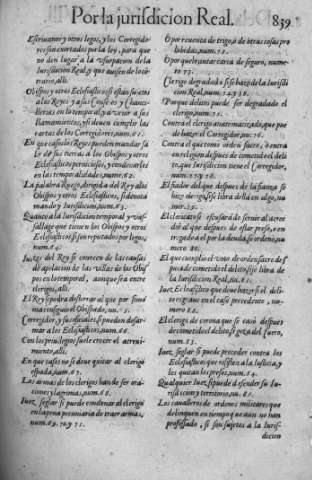 Por la jurisdicion Real.
839
Escriuanos y otros legos, y los Corregidores
son exortados por la ley, para que
no den lugar a la vsurpacion de la
Iurisdicion Real,
alli.
Obispos y otros Eclesiasticos si estan sugetos
a los Reyes y a sus Consejos y Chancillerias
en lo temporal, y a venir a sus
llamamientos, y si deuen cumplir las
cartas de los Corregidores, num. 61.
En que casos los Reyes pueden mandar salir
de sus tierras a los Obispos y otros
Eclesiasticos y condenarlos
en las temporalidades, num. 62.
La palabra Ruego, dirigida del Rey a los
Obispos y otros Eclesiasticos, si denota
mando y Iurisdicion, num. 63.
Quanto a la Iurisdicion temporal y vassallage
que tienen los Obispos y otros
Eclesiasticos si son reputados por legos,
num. 64.
Iuezes del Rey si conocen de las causas
de apelacion de las villas de los Obispos
en lo temporal, aunque sea entre
clerigos, alli.
El Rey si podra desterrar al que por simonia
consiguio el Obispado,
Corregidor, y sus oficiales si pueden desarmar
a los Eclesiasticos, num. 66.
Con los priuilegios suele crecer el atreuimiento,
alli.
En que casos no se deue quitar al clerigo
espada, num. 67.
Las armas de los clerigos han de ser oraciones
y lagrimas, num. 68.
Iuez seglar si puede condenar al clerigo
en la pena pecuniaria de traer armas,
num. 69. 70. y 71.
O por reuenta de trigo, o de otras cosas prohibidas,
num. 72.
O por quebrantar carta de seguro, numero
73.
Clerigo degradado si se haze de la Iurisdicion
Real, num. 74. y
Porque delitos puede ser degradado el
clerigo, num.
Contra el clerigo anatematizado, que puede
hazer el Corregidor, nu. 76.
Contra el que tomo orden sacro, o entra
en religion despues de cometido el delito,
que Iurisdicion tiene el Corregidor,
num. 77. y 78.
El fiador del que despues de la fiança se
hizo clerigo, si es libre della en algo, numer.
79.
El clerigato si escusara de seruir al acreedor
al que despues de estar preso, o entregado
a el por la deuda se ordeno, numero
80.
El que cumplio el voto de orden sacro despues
de cometido el delito, si es libre de
la Iurisdicion Real, nu. 81.
Iuez Eclesiastico que deue hazer si el delito
es graue en el caso precedente, numero
82.
El clerigo de corona que se casó despues
de cometido el delito si goza del fuero,
num. 83.
Iuez seglar si puede proceder contra los
Eclesiasticos, que resisten a la Iusticia, y
les quitan los presos, num. 84.
Qualquier Iuez si puede defender su Iurisdicion
y territorio, nu. 85.
Los caualleros de ordenes militares que
delinquen en tiempo que aun no han
professado, si son sujetos a la Iurisdicion